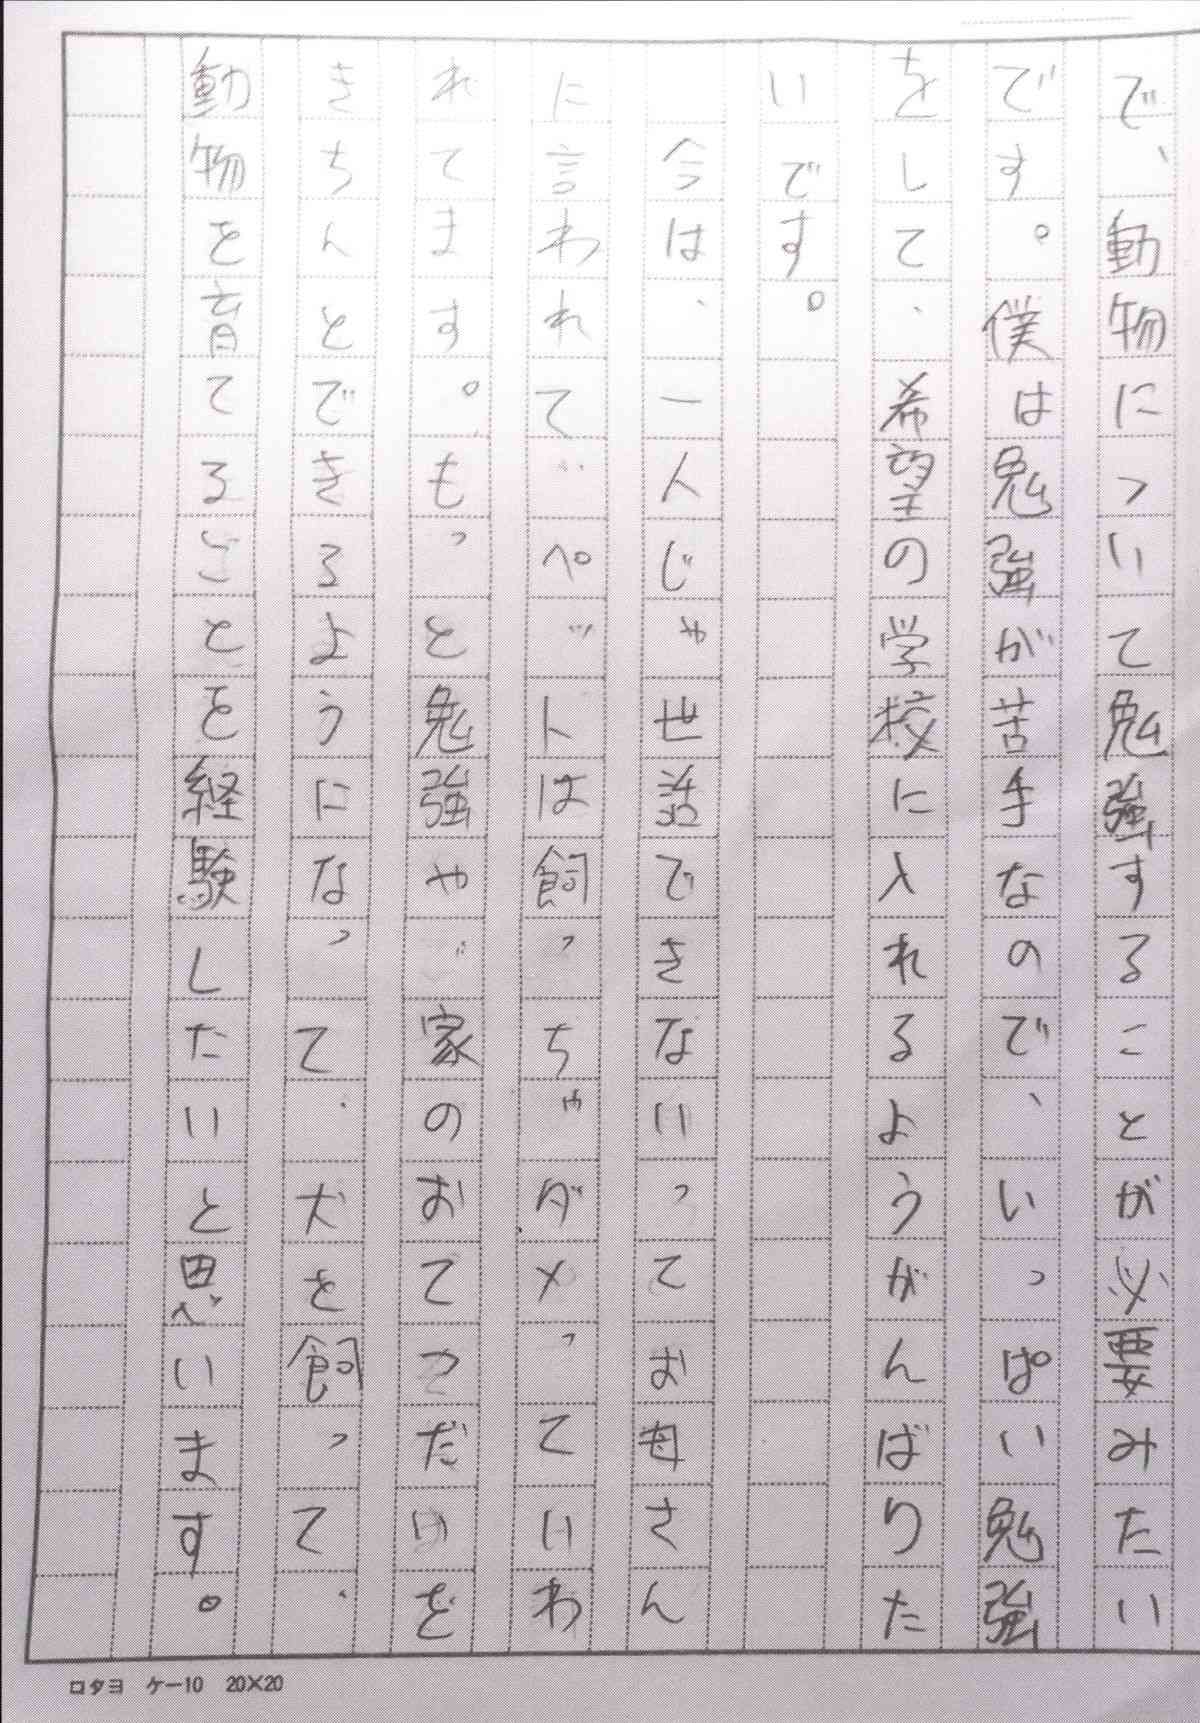 で、動物について勉強することが必要みたい
です。僕は勉強が苦手なので、いっぱい勉強
をして、希望の学校に入れるようがんばりた
いです。
今は、一人じゃ世話できないってお母さん
に言われて、ペットは飼っちゃダメっていわ
れてます。もっと勉強や、家のおてつだいを
きちんとできるようになって、犬を飼って、
動物を育てるごとを経験したいと思います。
ロタヨ ケー10 20×20